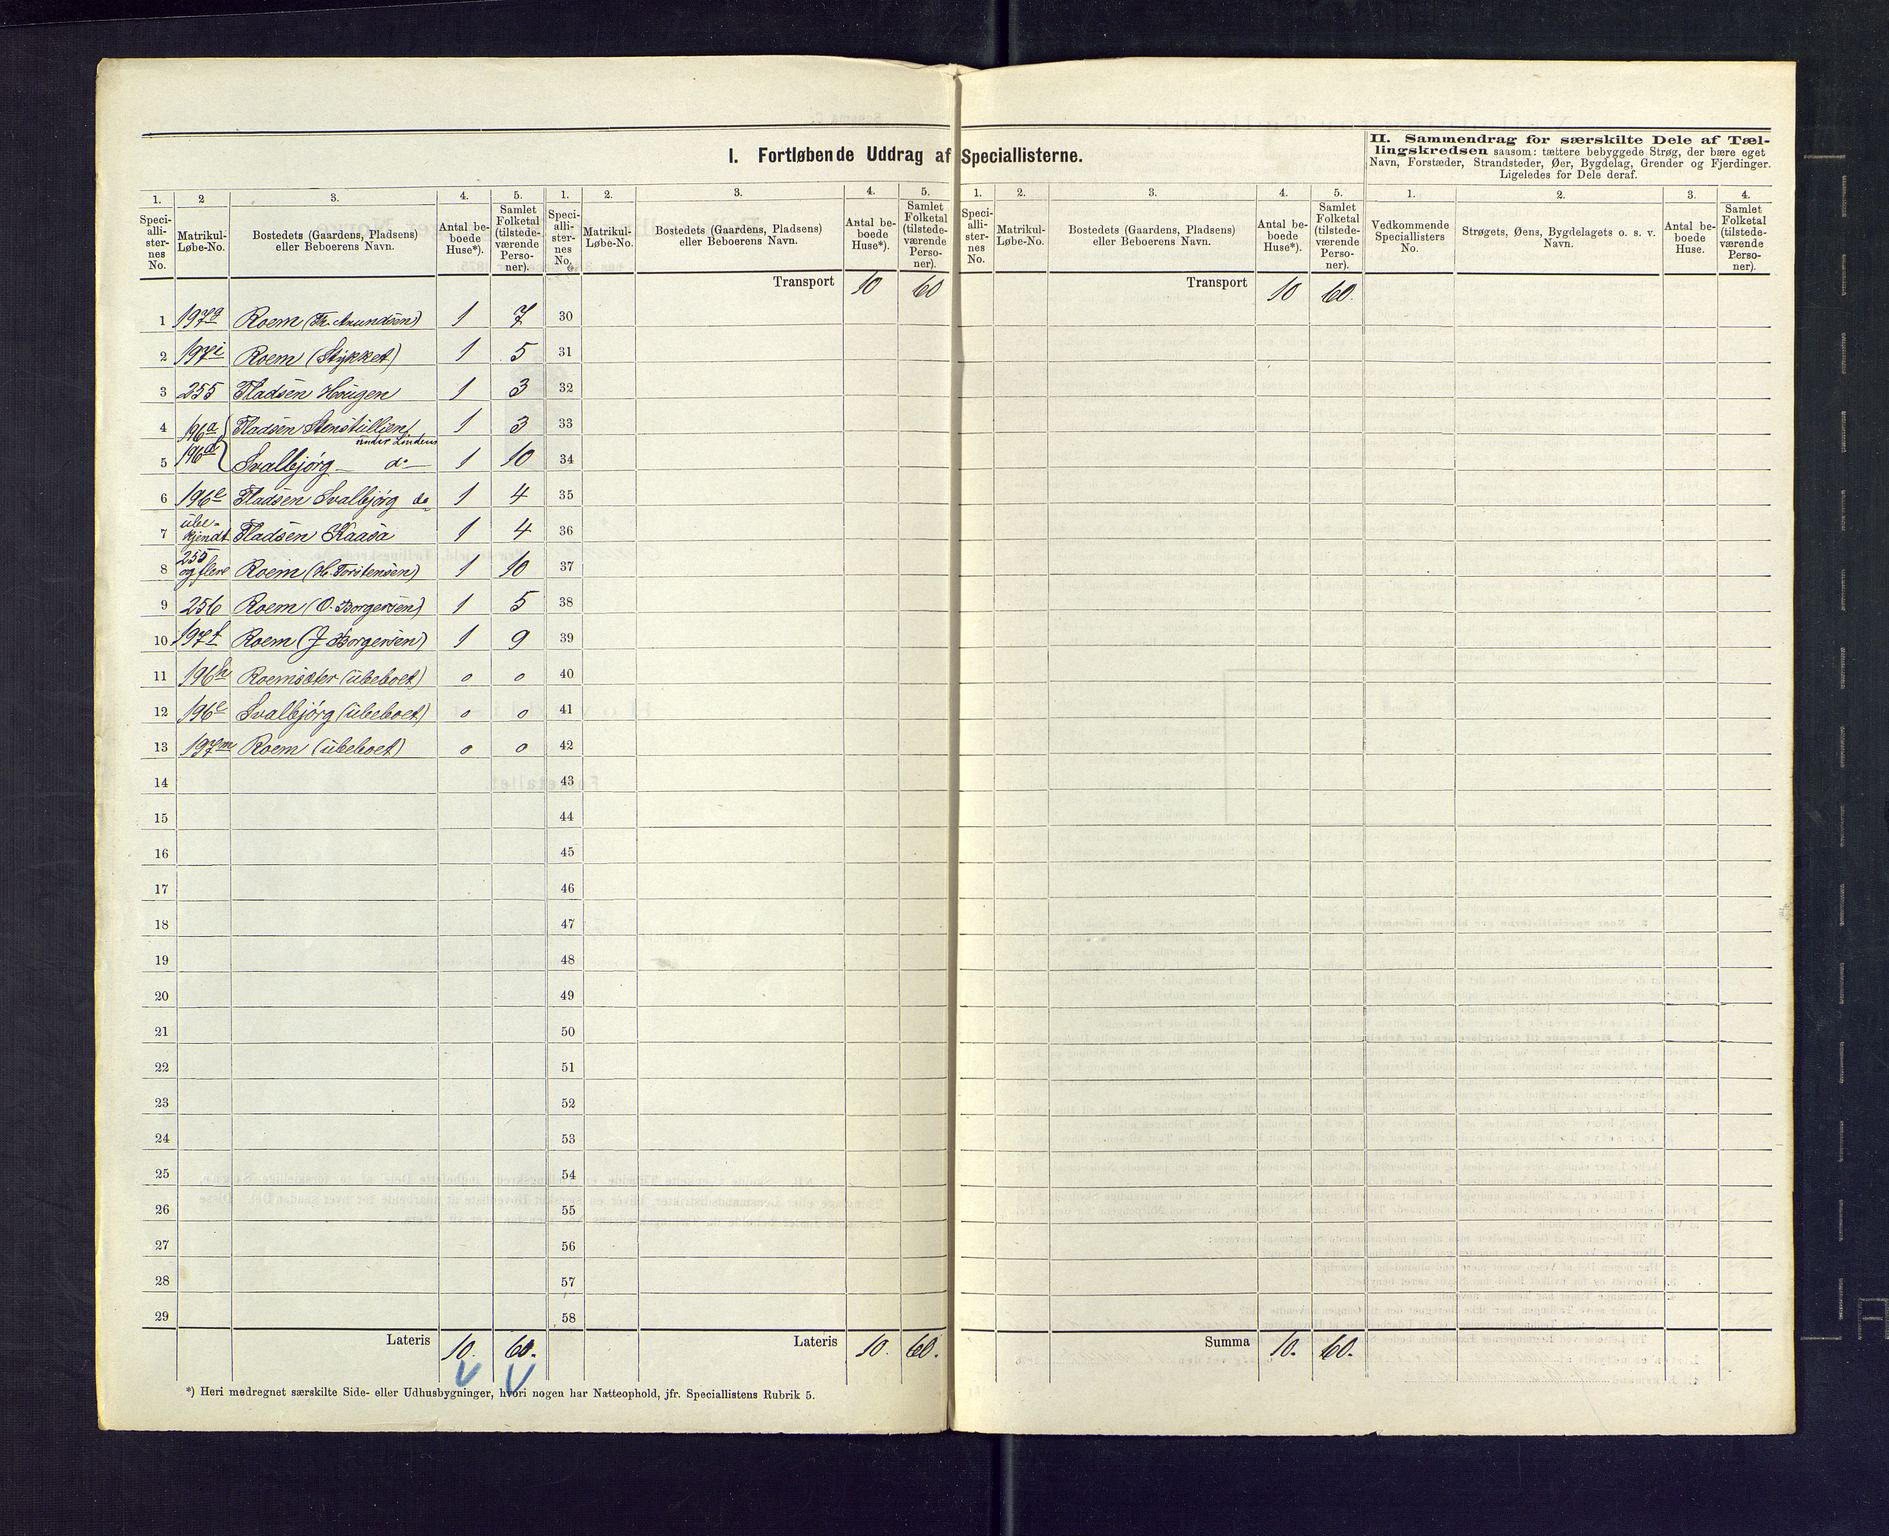 I. Fortløbende Uddrag af Speciallisterne.
II. Sammendrag for særskilte Dele af Tæl-
lingskredsen saasom: tættere bebyggede Strøg, der bære eget
Navn, Forstæder, Strandsteder, Øer, Bygdelag, Grender og Fjerdinger.
Ligeledes for Dele deraf.
1. 2 3. 4. 5. 1. 2. 3. 4. 5. 1. 2. 3. 4. 5. 1. 2. 3. 4.
Speci-allister-nes No. Matrikul-Løbe-No. Bostedets (Gaardens, Pladsens) eller Beboerens Navn. Antal be-boede Huse*). Samlet Folketal (tilstede-værende Perso-ner).
Speci-allister-nes No. Matrikul-Løbe-No. Bostedets (Gaardens, Pladsens) eller Beboerens Navn. Antal be-boede Huse*). Samlet Folketal (tilstede-værende Perso-ner).
Speci-allister-nes No. Matrikul-Løbe-No. Bostedets (Gaardens, Pladsens) eller Beboerens Navn. Antal be-boede Huse*). Samlet Folketal (tilstede-værende Perso-ner).
Vedkommende Speciallisters No. Strøgets, Øens, Bygdelagets o. s. v. Navn. Antal be-boede Huse. Samlet Folketal (tilstede-værende Perso-ner).
Transport 10 60 Transport 10 60.
1 197g Roem (Th. Amundsen) 1 7 30
2 197i Roem (Stykket) 1 5 31
3 255 Pladsen Haugen 1 3 32
4 196a Pladsen Stenstullien 1 3 33
under Lindem
5 196d Svalbjørg — do — 1 10 34
6 196e Pladsen Svalbjørg do 1 4 35
7 ube-kjendt Pladsen Kaasa 1 4 36
8 255 og flere Roem (H. Torstensen) 1 10 37
9 256 Roem (O. Borgersen) 1 5 38
10 197f Roem (J Borgersen) 1 9 39
11 196h Roemsæter (ubeboet) 0 0 40
12 196c Svalbjørg (ubeboet) 0 0 41
13 197m Roem (ubeboet) 0 0 42
14 43
15 44
16 45
17 46
18 47
19 48
20 49
21 50
22 51
23 52
24 53
25 54
26 55
27 56
28 57
29 58
Lateris 10. 60. Lateris 10. 60. Summa 10. 60.
*) Heri medregnet særskilte Side- eller Udhusbygninger, hvori nogen har Natteophold, jfr. Speciallistens Rubrik 5.